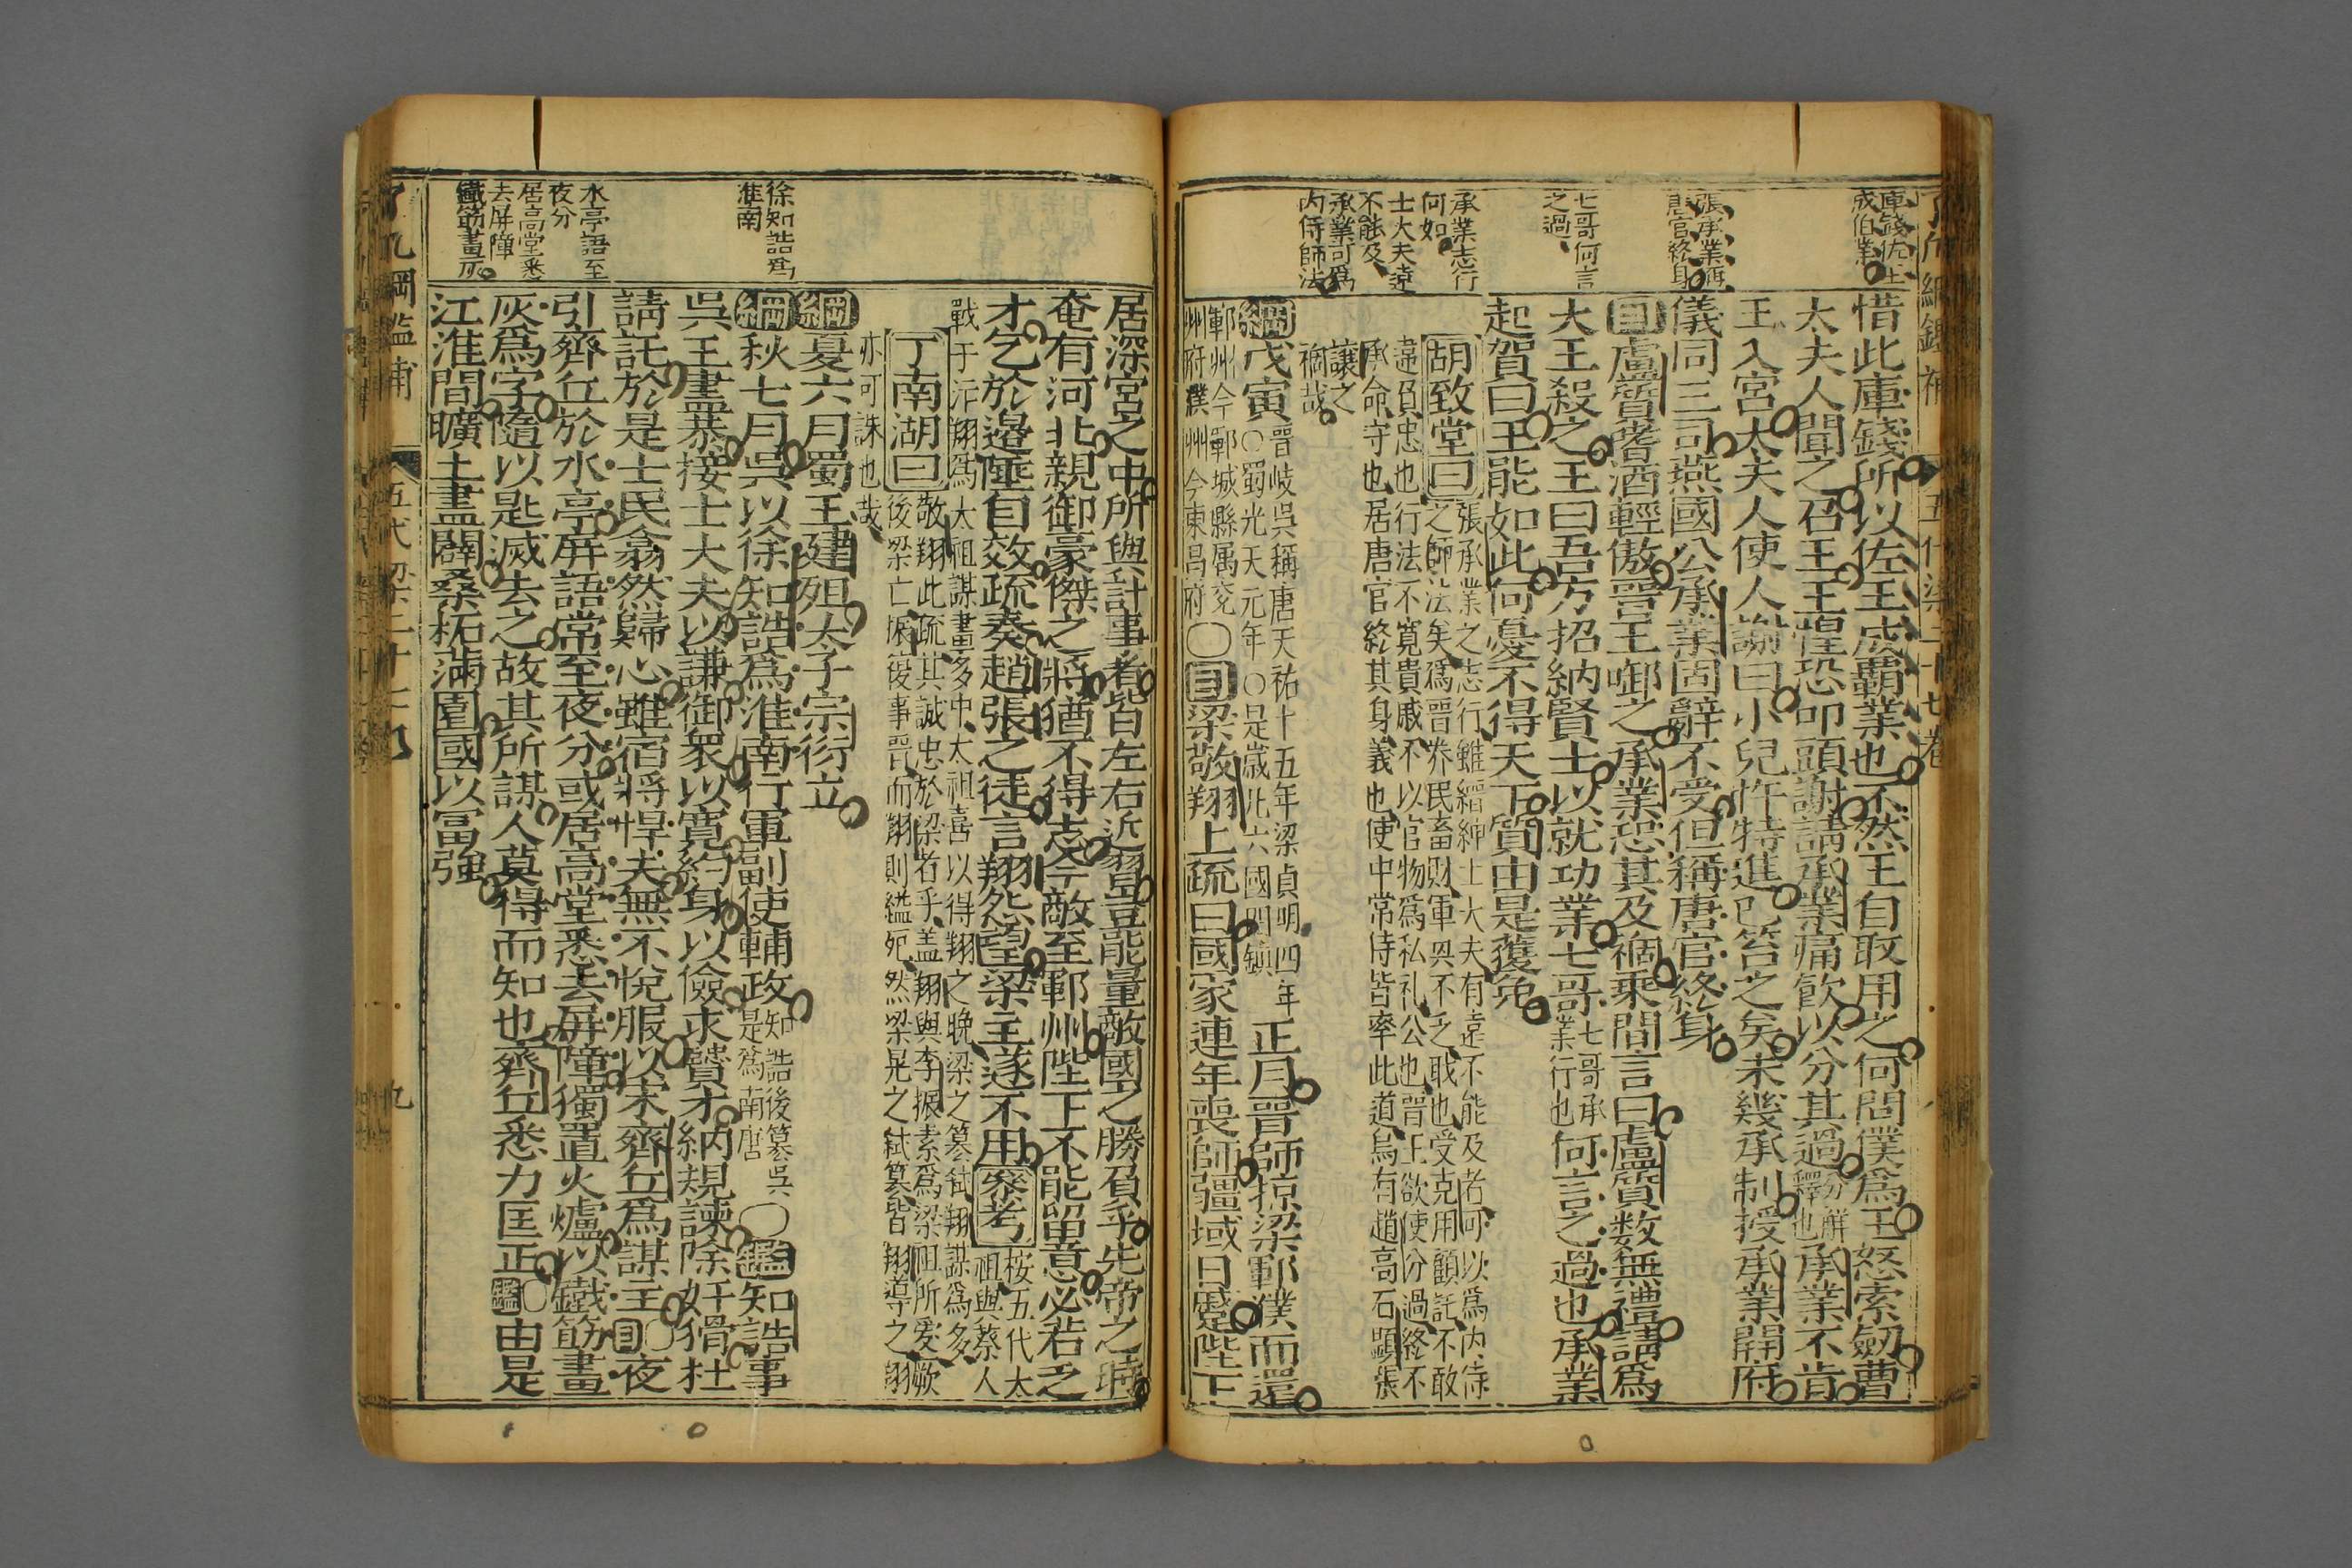 庫錢佐王
成伯業
張承業再
唐官終身
七哥何言
之過
承業志行
何如
士大夫遠
不能及
承業可為
内侍師法
惜此庫錢所以佐王成覇業也不然王自取用之何問僕爲王怒索劒曹
太夫人聞之召王王惶恐叩頭謝請承業痛飲以分其過分觧釋也承業不肯
王入宫太夫人使人謝曰小兒忤特進巳笞之矣未幾承制授承業開府
儀同三司燕國公承業固辭不受但稱唐官終身
目盧質嗜酒輕傲晉王啣之承業恐其及禍乘間言曰盧質数無禮請爲
大王殺之王曰吾方招納賢士以就功業七哥七哥承業行也何言之過也承業
起賀曰王能如此何憂不得天下質由是獲免
胡致堂曰張承業之志行雖縉紳士大夫有遠不能及者可以爲内侍
之師法矣爲晉养民畜財軍興不乏職也受克用顧託不敢
違負忠也行法不寛貴戚不以官物爲私礼公也晋王欲使分過終不
承命守也居唐官終其身義也使中常侍皆率此道烏有趙高石顯張
讓之
禍哉
綱戊寅晉岐吳稱唐天祐十五年梁貞明四年
○蜀光天元年○是歲凡六國四鎮正月晉師掠梁鄆濮而還
鄆州今鄆城縣属兖
州府濮州今東昌府○目梁敬翔上疏曰國家連年喪師疆域日蹙陛下
居深宮之中所與計事者皆左右近習豈能量敵國之勝負乎先帝之時
奄有河北親御豪傑之將猶不得志今敵至鄆州陛下不能留意必若乏
才乞於邉陲自效疏奏趙張之徒言翔怨望梁主遂不用叅考桉五代太
祖與蔡人
戰于汴翔爲太祖謀畫多中太祖喜以得翔之晚梁之篡弑翔謀爲多
丁南湖曰敬翔此疏其誠忠於梁者乎盖翔與李振素爲梁祖所爱厥
後梁亡振復事晋而翔則縊死然梁晃之弑篡皆翔導之翔
亦可誅也哉
綱夏六月蜀王建殂太子宗衍立
綱秋七月吳以徐知誥爲淮南行軍副使輔政知誥後篡吳
是爲南唐○鑑知誥事
吳王盡恭接士大夫以謙御衆以寛約身以儉求賢才納規諫除奸猾杜
請託於是士民翕然歸心雖宿將悍夫無不悅服以宋齊丘爲謀主○目夜
引齊丘於水亭屏語常至夜分或居高堂悉去屏障獨置火爐以鐵筯畫
灰爲字隨以匙滅去之故其所謀人莫得而知也齊丘悉力匡正○鑑由是
江淮間曠土盡闢桑柘滿圍國以冨强
徐知誥爲
淮南
水亭語至
夜分
居高堂悉
去屏障
鐵筯畫灰
了凡綱鑑補
五代梁二十七卷
九